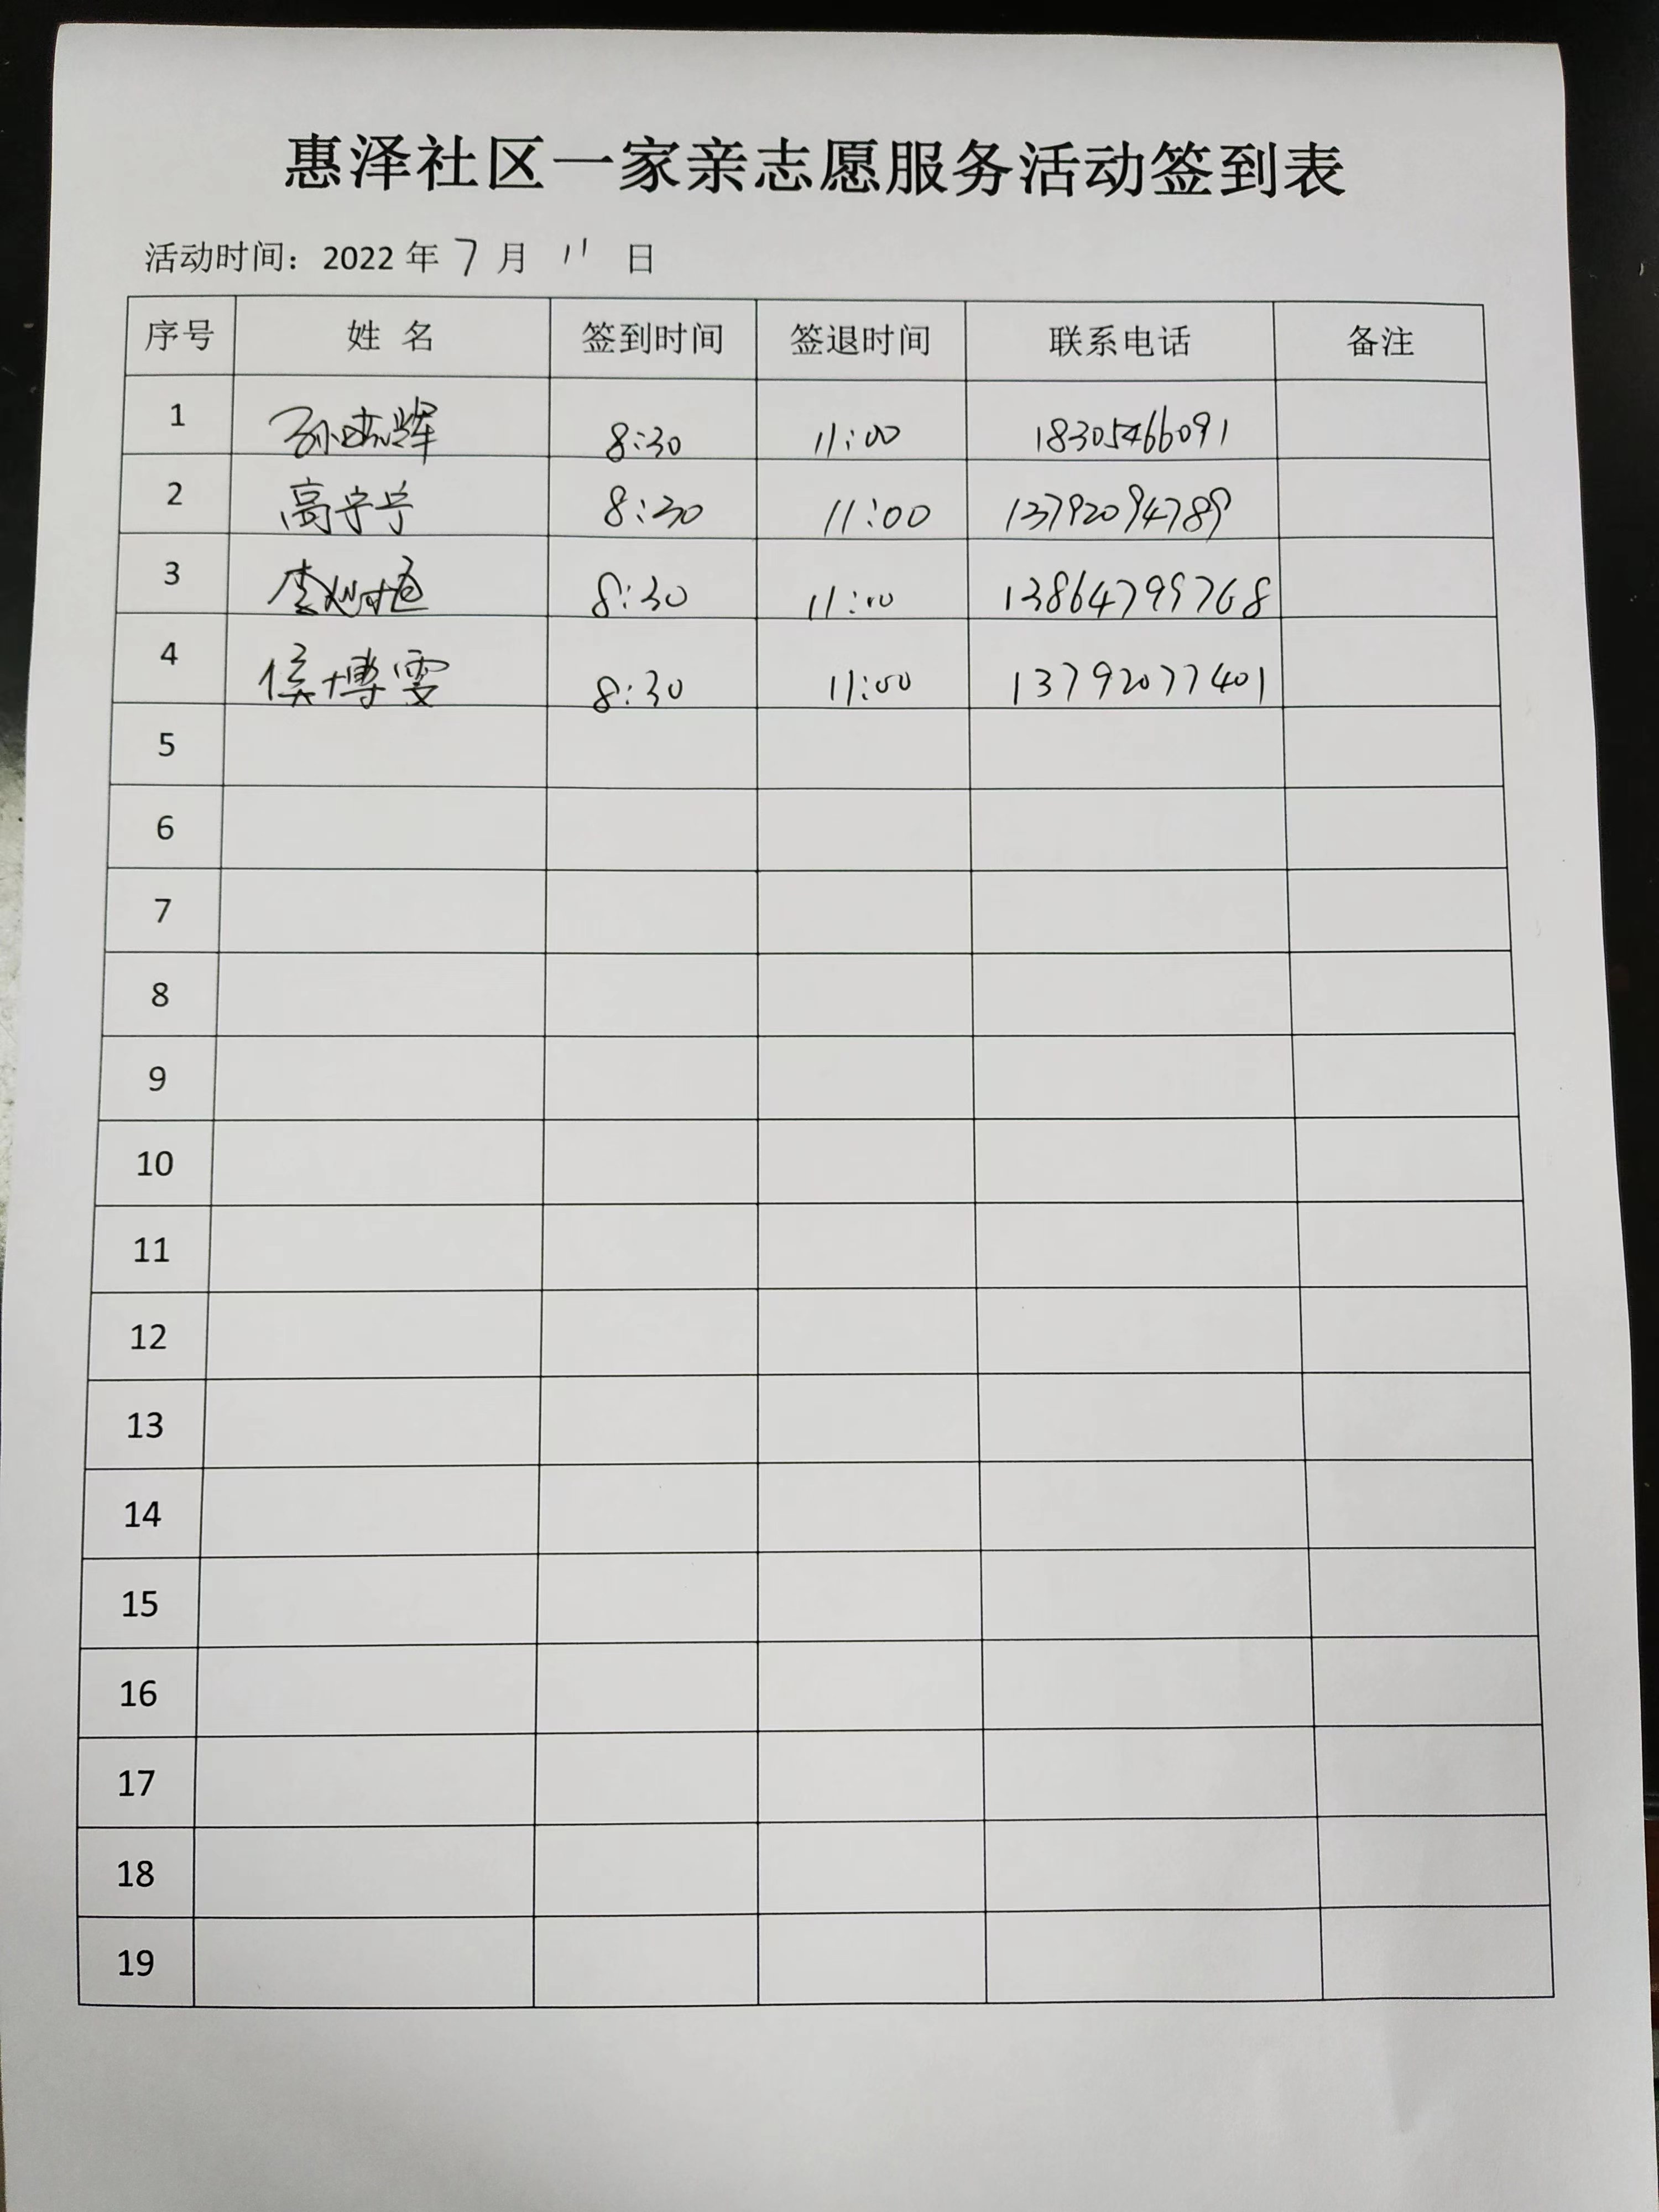 惠泽社区一家亲志愿服务活动签到表
活动时间：2022 年 7 月 11 日
序号 姓 名 签到时间 签退时间 联系电话 备注
1 孙 辉 8:30 11:00 18305466091
2 高宁宁 8:30 11:00 13792094789
3 李 8:30 11:00 13864799768
4 侯博雯 8:30 11:00 13792077401
5
6
7
8
9
10
11
12
13
14
15
16
17
18
19